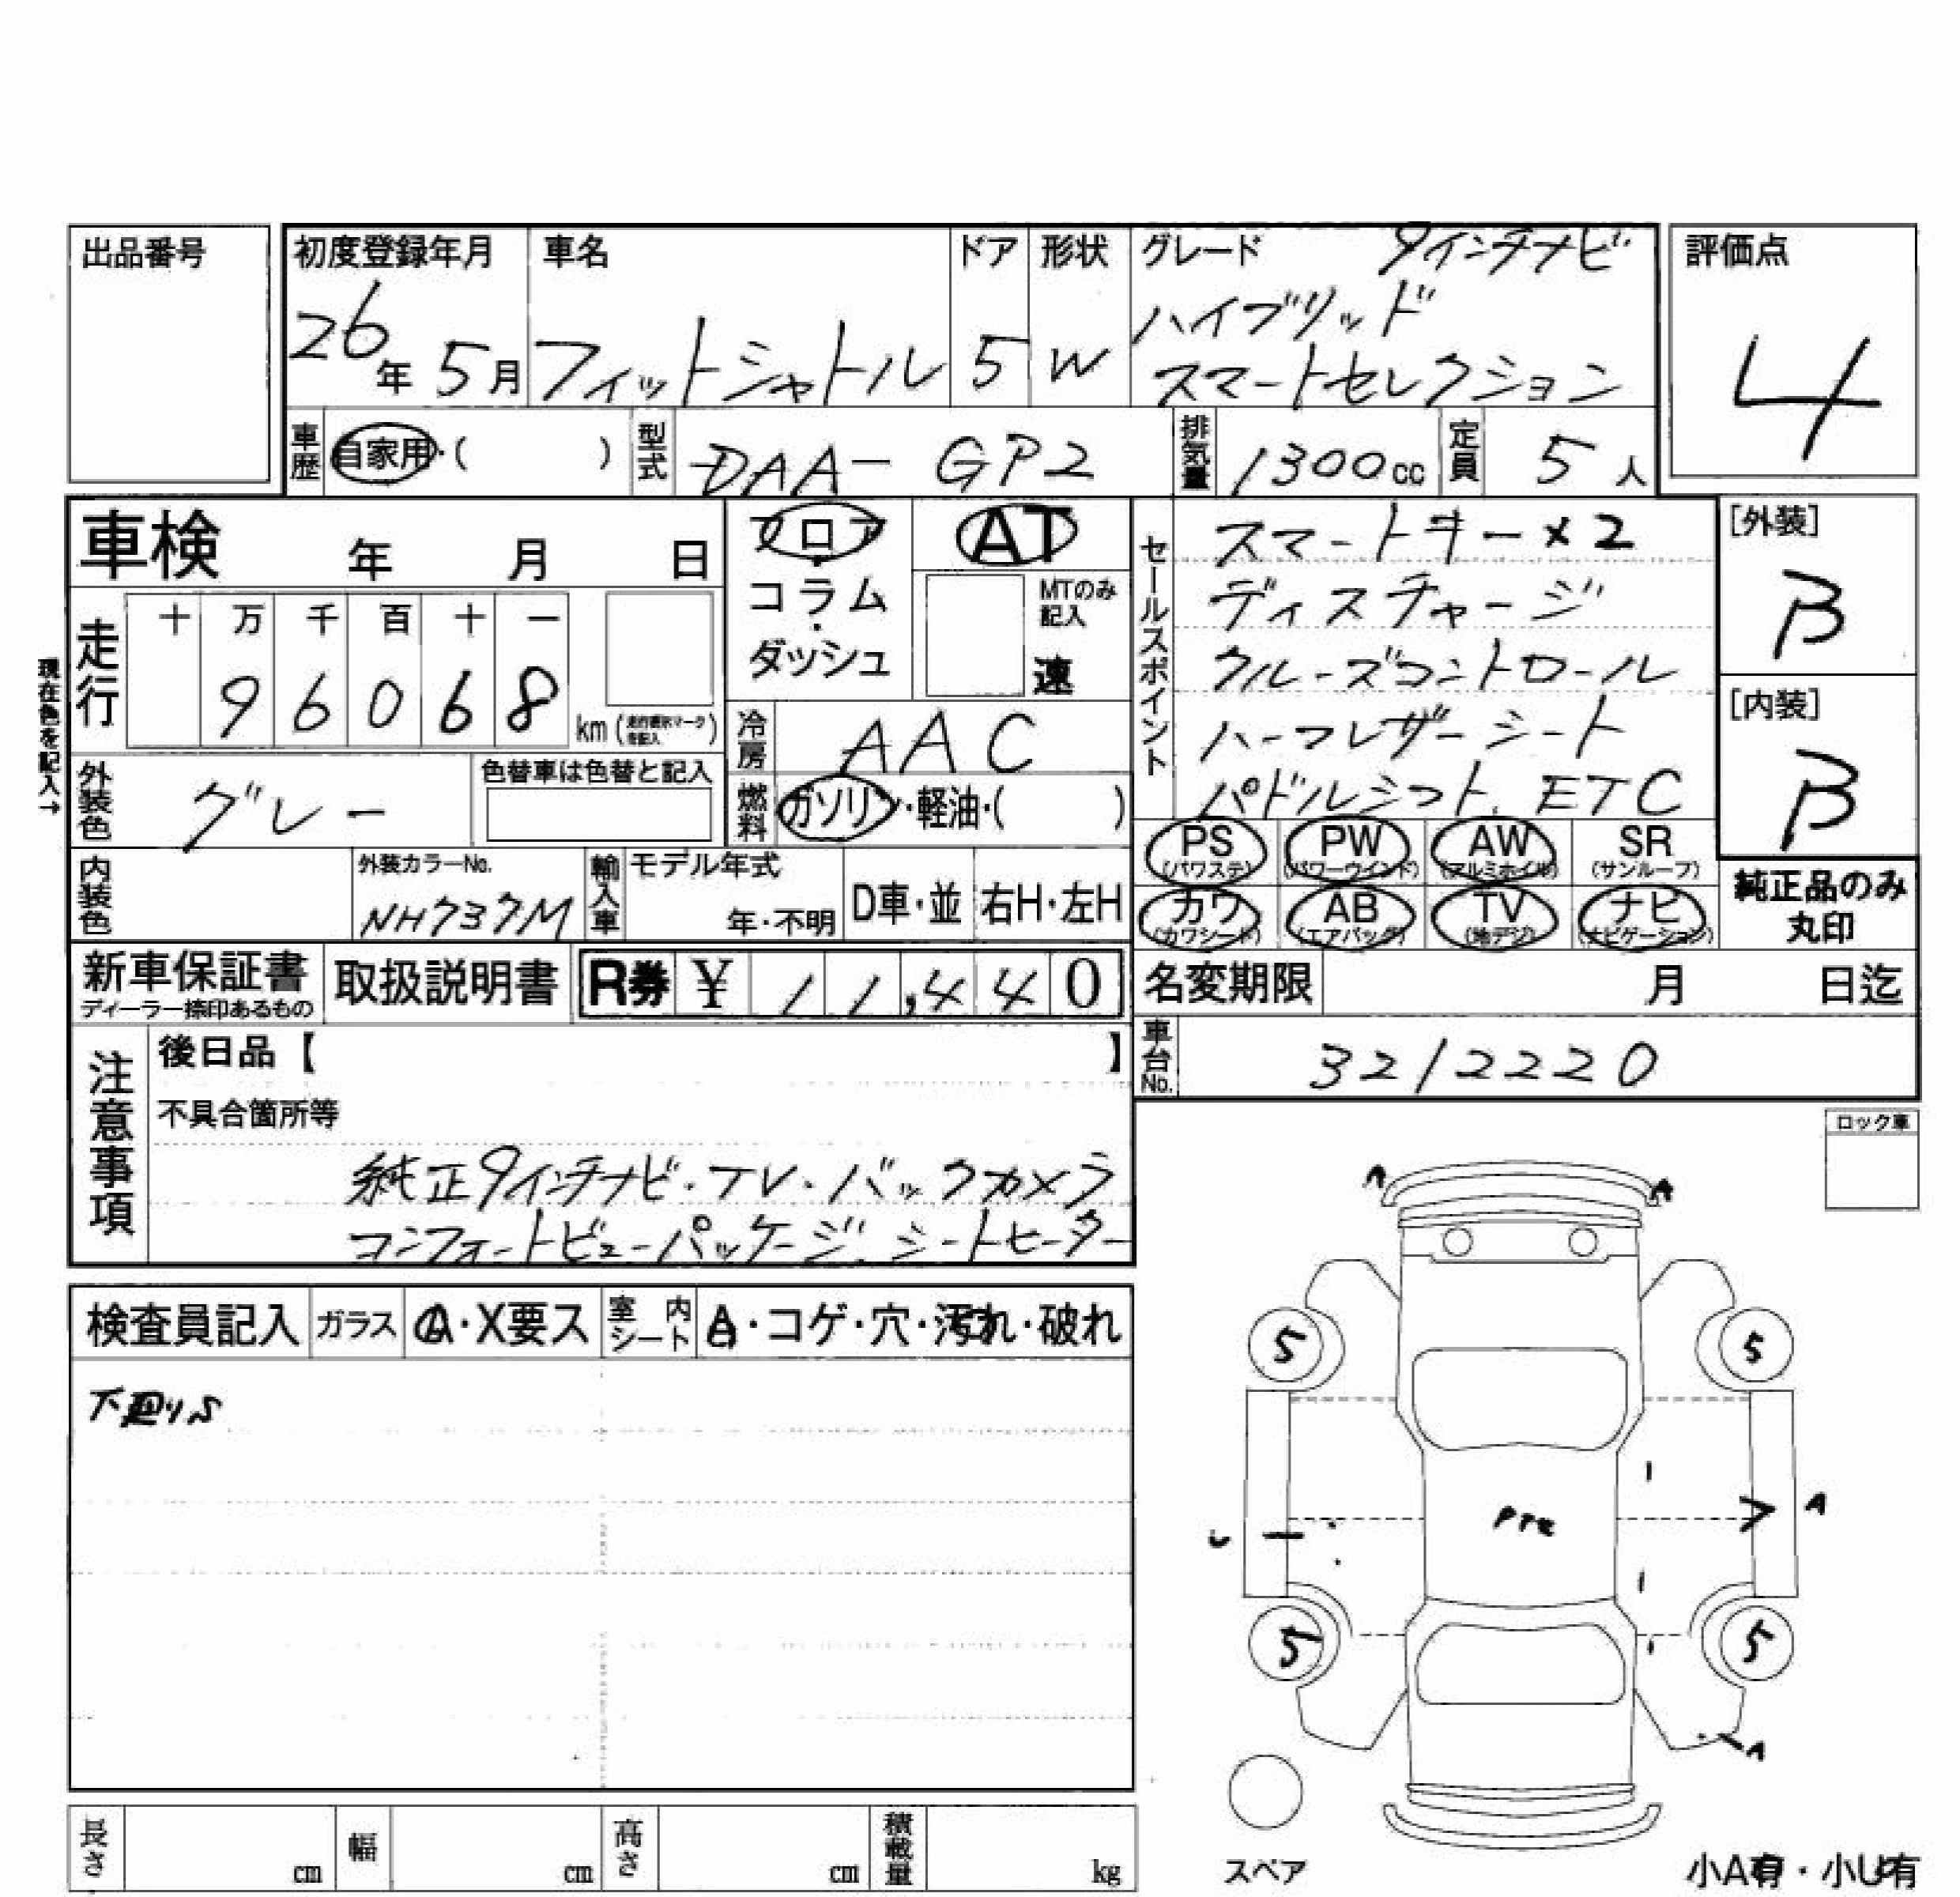 出品番号
初度登録年月 車名 ドア 形状 グレード 9インチナビ 評価点
26年 5月 フィットシャトル 5 W ハイブリッド
スマートセレクション
4
車歴 自家用・( ) 型式 DAA-GP2 排気量 1300cc 定員 5人
車検 年 月 日
フロア・コラム・ダッシュ
AT
MTのみ記入
速
セールスポイント
スマートキー×2
ディスチャージ
クルーズコントロール
ハーフレザーシート
パドルシフト、ETC
[外装]
B
[内装]
B
現在色を記入→
走行 十 万 千 百 十 一
96068 km (走行要示マーク記入)
冷房 AAC
外装色 グレー 色替車は色替と記入
燃料 ガソリン・軽油・( )
PS (パワステ) PW (パワーウインド) AW (アルミホイル) SR (サンルーフ)
カワ (カワシート) AB (エアバッグ) TV (地デジ) ナビ (ナビゲーション)
純正品のみ
丸印
内装色 外装カラーNo. NH737M 輸入車 モデル年式 年・不明 D車・並 右H・左H
新車保証書 ディーラー捺印あるもの 取扱説明書 R券 ¥ 11,440
名変期限 月 日迄
車台No. 3212220
注意事項
後日品【 】
不具合箇所等
純正9インチナビ・TV・バックカメラ
コンフォートビューパッケージ、シートヒーター
ロック車
検査員記入 ガラス A・X要ス 室内シート A・コゲ・穴・汚れ・破れ
下廻りS
A A
5 5
A
U
5 5
A
スペア
小A有・小U有
長さ cm 幅 cm 高さ cm 積載量 kg